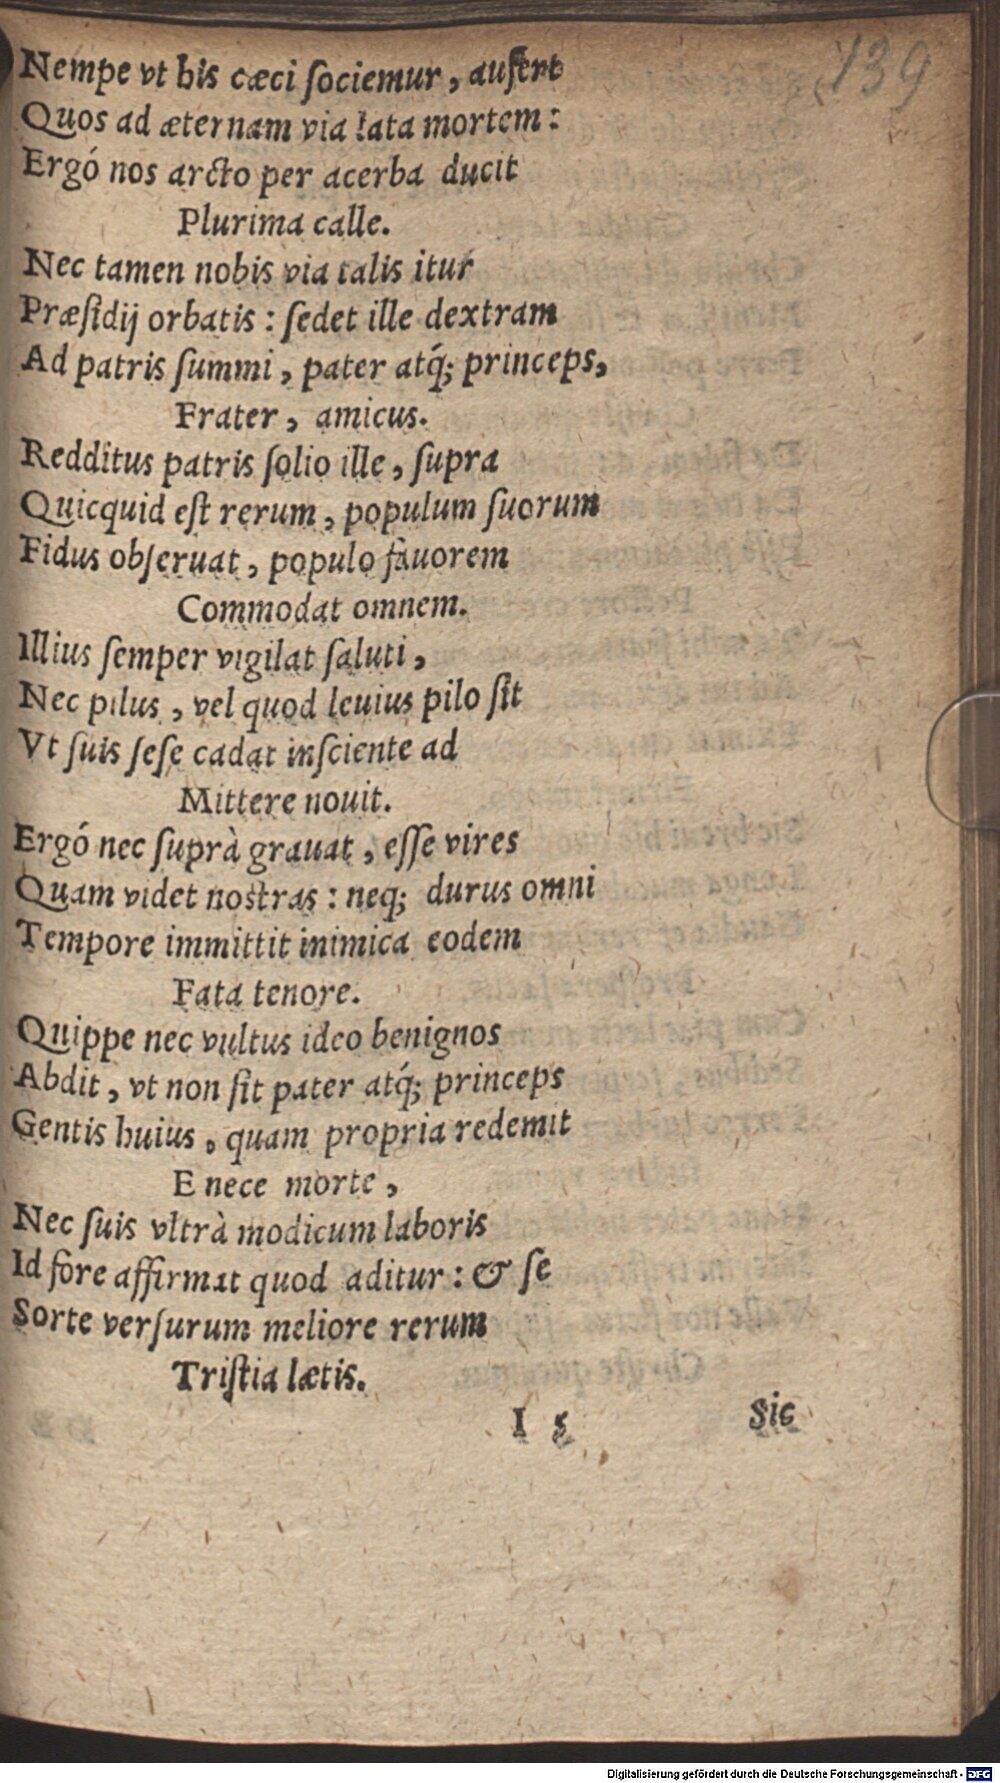 139
Nempe vt his cæci ſociemur, aufert
Quos ad æternam via lata mortem:
Ergó nos arcto per acerba ducit
Plurima calle.
Nec tamen nobis via talis itur
Præſidij orbatis: ſedet ille dextram
Ad patris ſummi, pater atq́; princeps,
Frater, amicus.
Redditus patris ſolio ille, ſupra
Quicquid eſt rerum, populum ſuorum
Fidus obſeruat, populo fauorem
Commodat omnem.
Illius ſemper vigilat ſaluti,
Nec pilus, vel quod leuius pilo ſit
Vt ſuis ſeſe cadat inſciente ad
Mittere nouit.
Ergó nec ſuprà grauat, eſſe vires
Quam videt nostras: neq; durus omni
Tempore immittit inimica eodem
Fata tenore.
Quippe nec vultus ideo benignos
Abdit, vt non ſit pater atq́; princeps
Gentis huius, quam propria redemit
E nece morte,
Nec ſuis vltrà modicum laboris
Id fore affirmat quod aditur: & ſe
Sorte verſurum meliore rerum
Triſtia lætis.
I 5
Sic
Digitalisierung gefördert durch die Deutsche Forschungsgemeinschaft - DFG